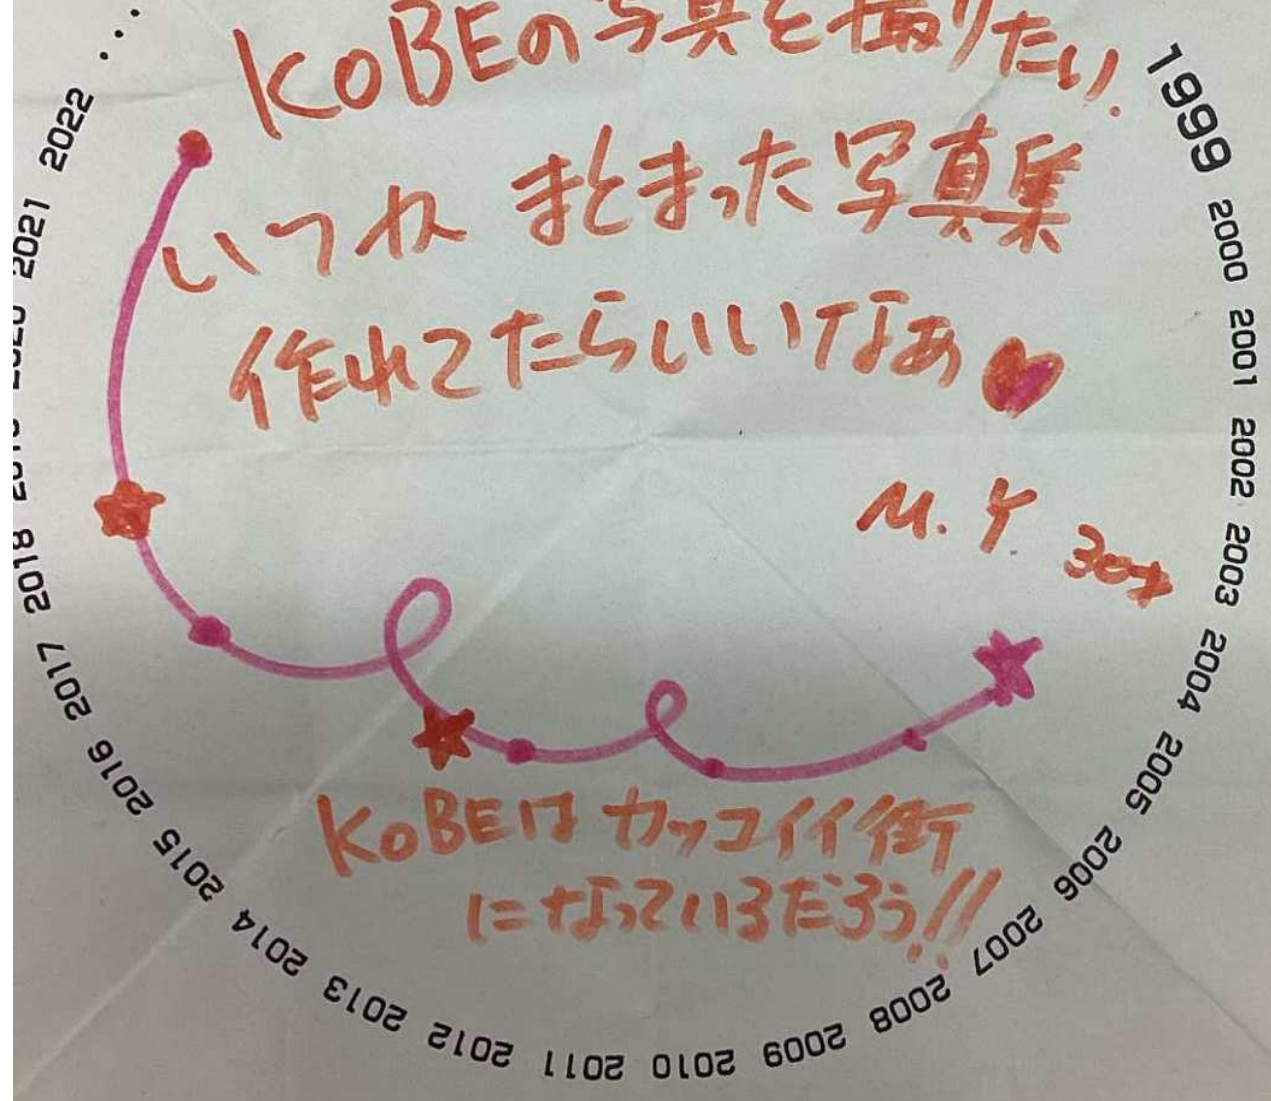 KOBEの写真を撮りたい.
いつか まとまった写真集
作れてたらいいなあ
M. Y. 30才
KOBEは カッコイイ街
になっているだろう!!
1999 2000 2001 2002 2003 2004 2005 2006 2007 2008 2009 2010 2011 2012 2013 2014 2015 2016 2017 2018 2021 2022 ...